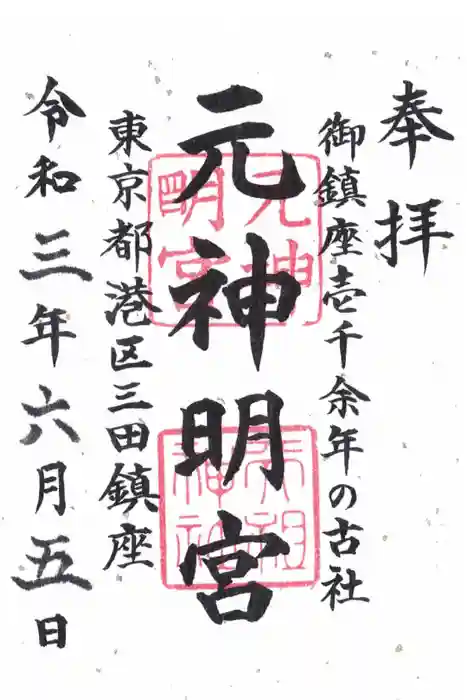 奉拝
御鎮座壱千余年の古社
元神明宮
東京都港区三田鎮座
令和三年六月五日
元神
明宮
天祖
神社